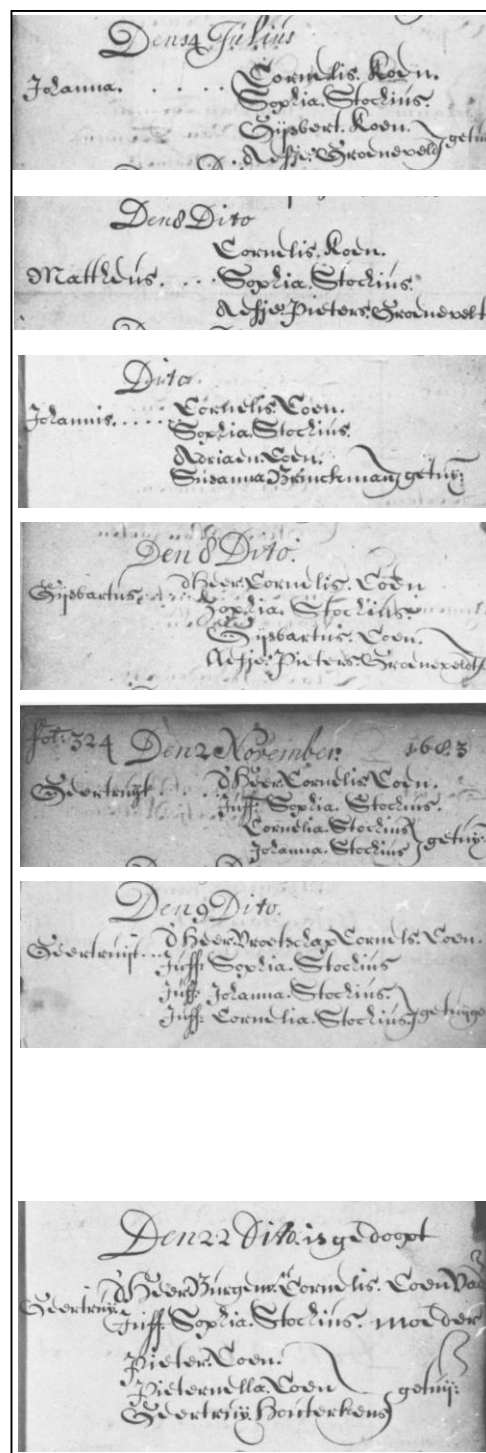 Den 14 Julius
Johanna. . . . . . Cornelis. Koen.
Sophia. Stochius.
Gijsbert. Koen.
Aefje. Groenevelt getui
Den 8 Dito
Cornelis. Koen.
Mattheus. . . . Sophia. Stochius.
Aefje. Pieters. Groenevelt
Dito.
Johannis. . . . . Cornelis. Coen.
Sophia. Stochius.
Adriaen Coen.
Susanna. Brinckman getuij:
Den 8 Dito.
Gijsbartus. . . dheer. Cornelis. Coen
Sophia. Stochius.
Gijsbartus. Coen.
Aefje. Pieters. Groeneveldt
fol: 324 Den 2 November. 1683
Geertruijt . . . dheer. Cornelis Coen.
Juff: Sophia. Stochius.
Cornelia. Stochius
Johanna. Stochius getuij:
Den 9 Dito.
Geertruijt. . . d'heer. Vroetschap Cornelis. Coen.
Juff: Sophia. Stochius
Juff: Johanna. Stochius.
Juff: Cornelia. Stochius. getuijge
Den 22 dito. is gedoopt
Geertruij: d'heer Burgemr. Cornelis. Coen Vad
Juff: Sophia. Stochius. moeder
Pieter. Coen.
Pieternella. Coen getuij:
Geertruij. Houterkens